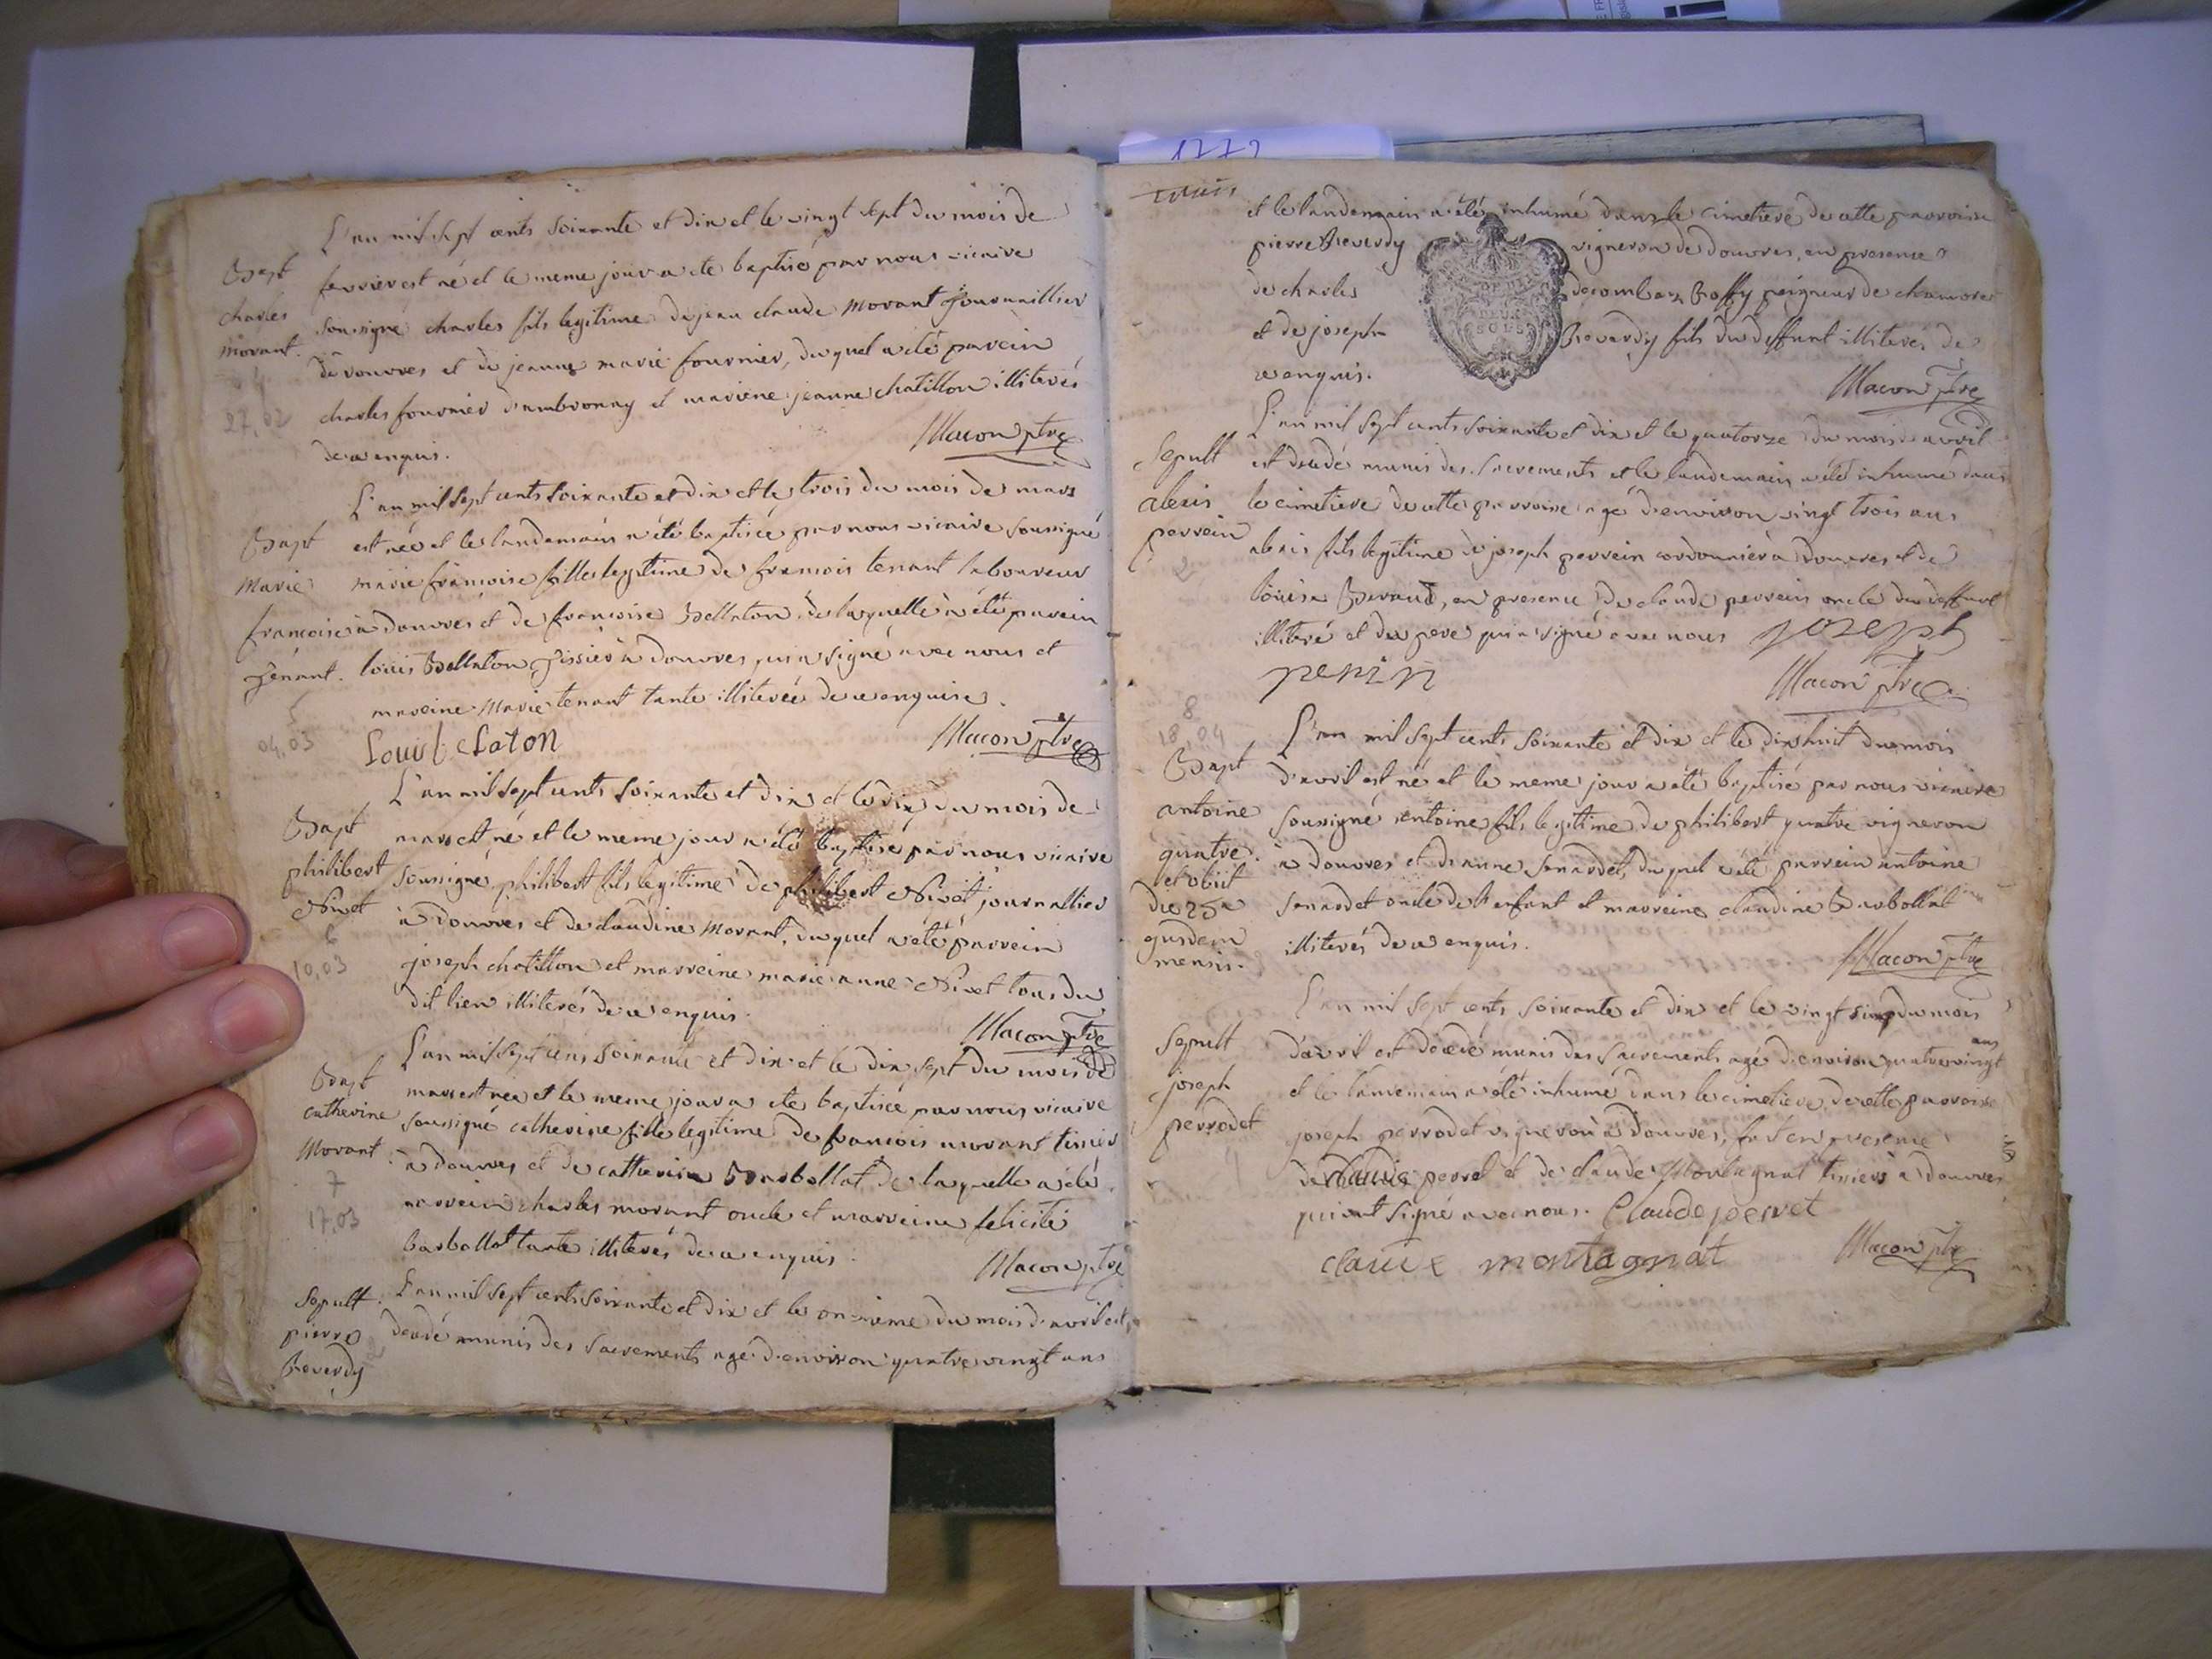 L'an mil sept cents soixante et dix et le vingt sept du mois de
Bapt
charles
morant.
27,02
fevrier est né et le meme jour a ete baptisé par nous vicaire
soussigné charles fils legitime de jean claude morant journaillier
de douvres et de jeanne marie fournier, duquel a été parein
charles fournier d'ambronay et mareine jeanne chatillon illiterés
de ce enquis.
Macon ptre
L'an mil sept cents soixante et dix et le trois du mois de mars
Bapt
Marie
francoise
tenant.
5
04,03
est née et le landemain a été baptisée par nous vicaire soussigné
marie francoise fille legitime de francois tenant laboureur
à douvres et de francoise Bellaton, de laquelle a été parein
louis Bellaton tissier à douvres qui a signé avec nous et
mareine Marie tenant tante illiterée de ce enquise.
Louis belaton
Macon ptre
L'an mil sept cents soixante et dix et le dix du mois de
Bapt
philibert
Nivet
6
10,03
mars est né et le meme jour a été baptisé par nous vicaire
soussigné philibert fils legitime de philibert Nivet journallier
à douvres et de claudine Morant, duquel a été parrein
joseph chatillon et marreine marie anne Nivet tous du
dit lieu illiterés de ce enquis.
Macon ptre
L'an mil sept cens soixante et dix et le dix sept du mois de
Bapt
catherine
Morant.
7
17,03
mars est née et le meme jour a ete baptisée par nous vicaire
soussigné catherine fille legitime de francois morant tissier
à douvres et de catherine Barbollat de laquelle a été
parrein charles morant oncle et marreine felicité
barbollat tante illiterés de ce enquis.
Macon ptre
Sepult.
pierre
Reverdy
L'an mil sept cents soixante et dix et le onzieme du mois d'avril est
decedé munis des sacrements agé d'environ quatre vingt ans
trois
et le landemain a été inhumé dans le cimetiere de cette parroisse
pierre Reverdy vigneron de douvres, en presence
de charles decombaz Boffy peigneur de chanvre
et de joseph Reverdy fils du deffunt illiterés de
ce enquis.
DEUX
SOLS
Macon ptre
L'an mil sept cents soixante et dix et le quatorze du mois d'avril
Sepult
alexis
perrein
2
est decedé munis des sacrements et le landemain a été inhumé dans
le cimetiere de cette parroisse agé d'environ vingt trois ans
alexis fils legitime de joseph perrein cordonnier à douvres et de
louise Beraud, en presence de claude perrein oncle du deffunt
illiteré et du pere qui a signé avec nous joseph
perin
Macon ptre
8
18,04
L'an mil sept cents soixante et dix et le dixhuit du mois
Bapt
antoine
quatre.
et obiit
die 25a
ejusdem
mensis.
d'avril est né et le meme jour a été baptisé par nous vicaire
soussigné antoine fils legitime de philibert quatre vigneron
à douvres et d'anne senardet, duquel a été parrein antoine
senardet oncle de l'enfant et marreine claudine Barbollat
illiterés de ce enquis.
Macon ptre
L'an mil sept cents soixante et dix et le vingt du mois
Sepult
joseph
perrodet
d'avril est decedé munis des sacrements agé d'environ quatrevingt ans
et le landemain a été inhumé dans le cimetiere de cette parroisse
joseph perrodet vigneron à douvres, fait en presence
de claude perret et de claude Montagnat tissiers à douvres
qui ont signé avec nous. Claude perret
claude montagnat
Macon ptre